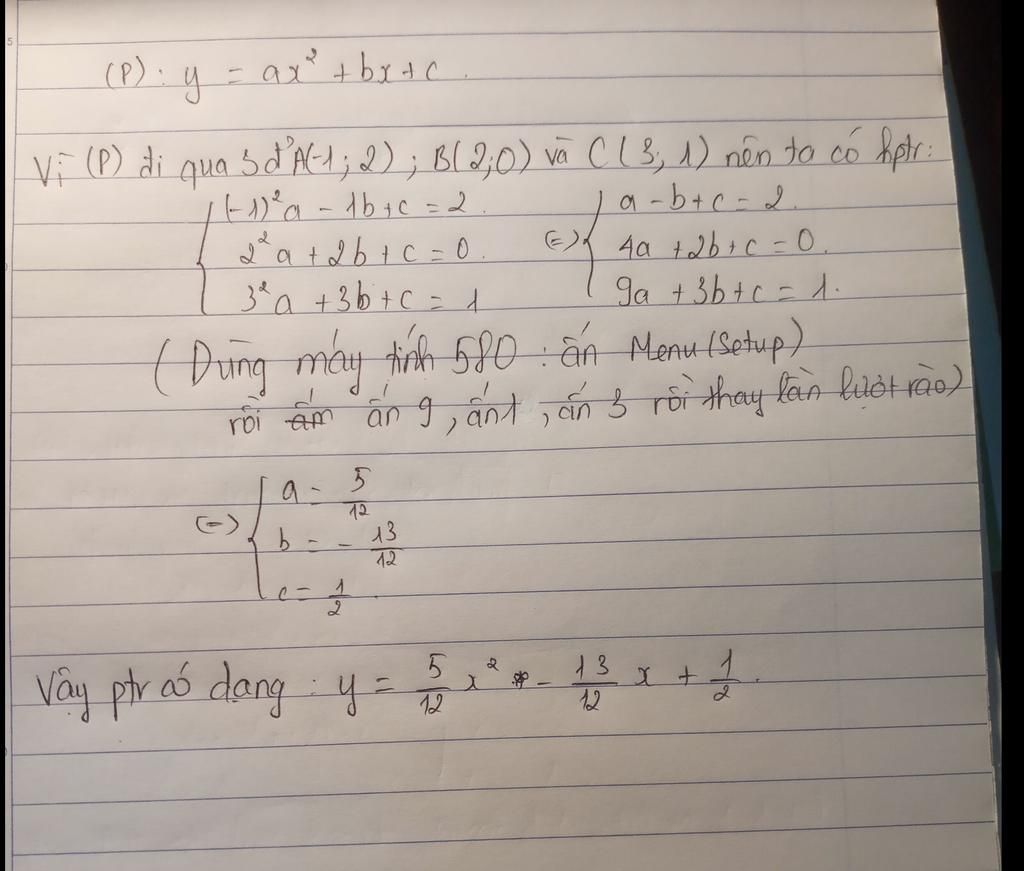 (P): y = ax² + bx + c.
Vì (P) đi qua 3 đ' A(-1; 2); B(2; 0) và C(3; 1) nên ta có hptr:
{ (-1)²a - 1b + c = 2. (=) { a - b + c = 2.
2²a + 2b + c = 0. 4a + 2b + c = 0.
3²a + 3b + c = 1 9a + 3b + c = 1.
(Dùng máy tính 580: ấn Menu (Setup)
rồi ấn 9, ấn 1, ấn 3 rồi thay lần lượt vào)
(=) { a = 5/12
b = - 13/12
c = 1/2.
Vậy ptr có dạng: y = 5/12 x² - 13/12 x + 1/2.